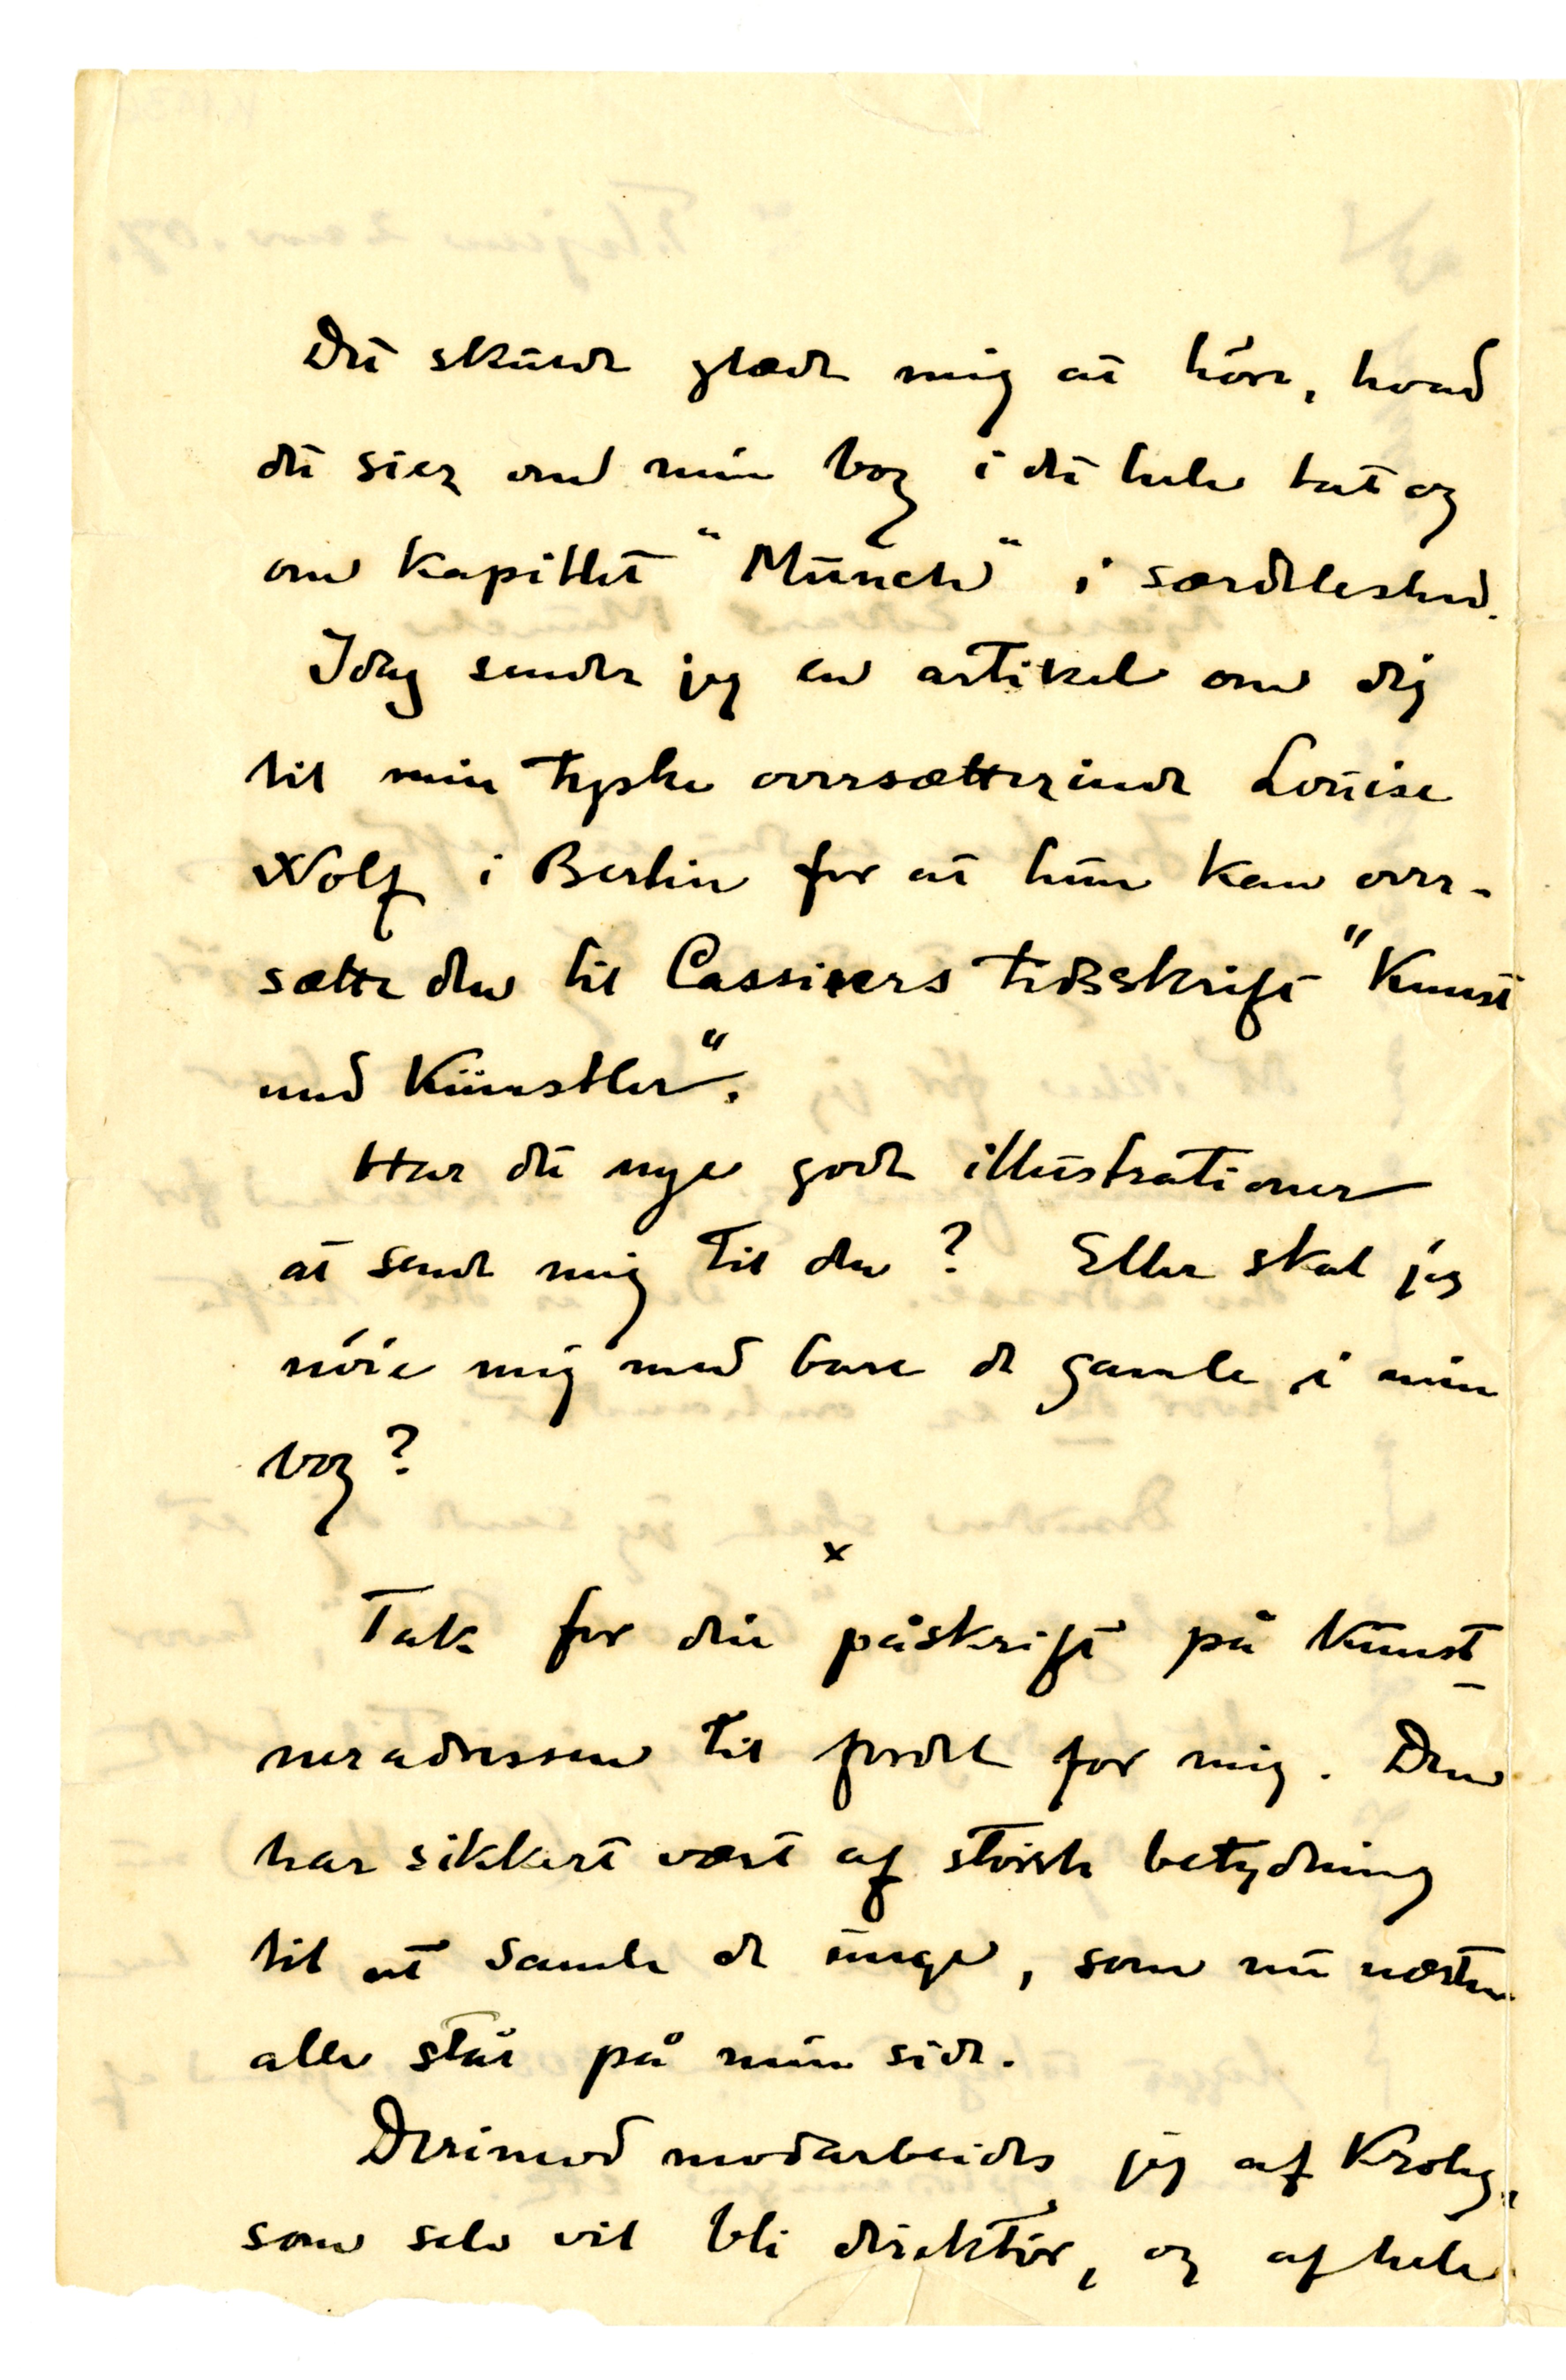 Det skulde glæde mig at høre, hvad
du sier om min bog i det hele tat og
om kapitlet "Munch" i særdeleshed.
Idag sender jeg en artikel om dig
til min tyske oversætterinde Louise
Wolf i Berlin for at hun kan over-
sætte den til Cassirers tidsskrift "Kunst
und Künstler".
Har du nye gode illustrationer
at sende mig til den? Eller skal jeg
nøie mig med bare de gamle i min
bog?
x
Tak for din påskrift på kunst-
neradressen til fordel for mig. Den
har sikkert vært af største betydning
til at samle de unge, som nu næsten
alle står på min side.
Derimod modarbeides jeg af Krohg,
som selv vil bli direktør, og af hele